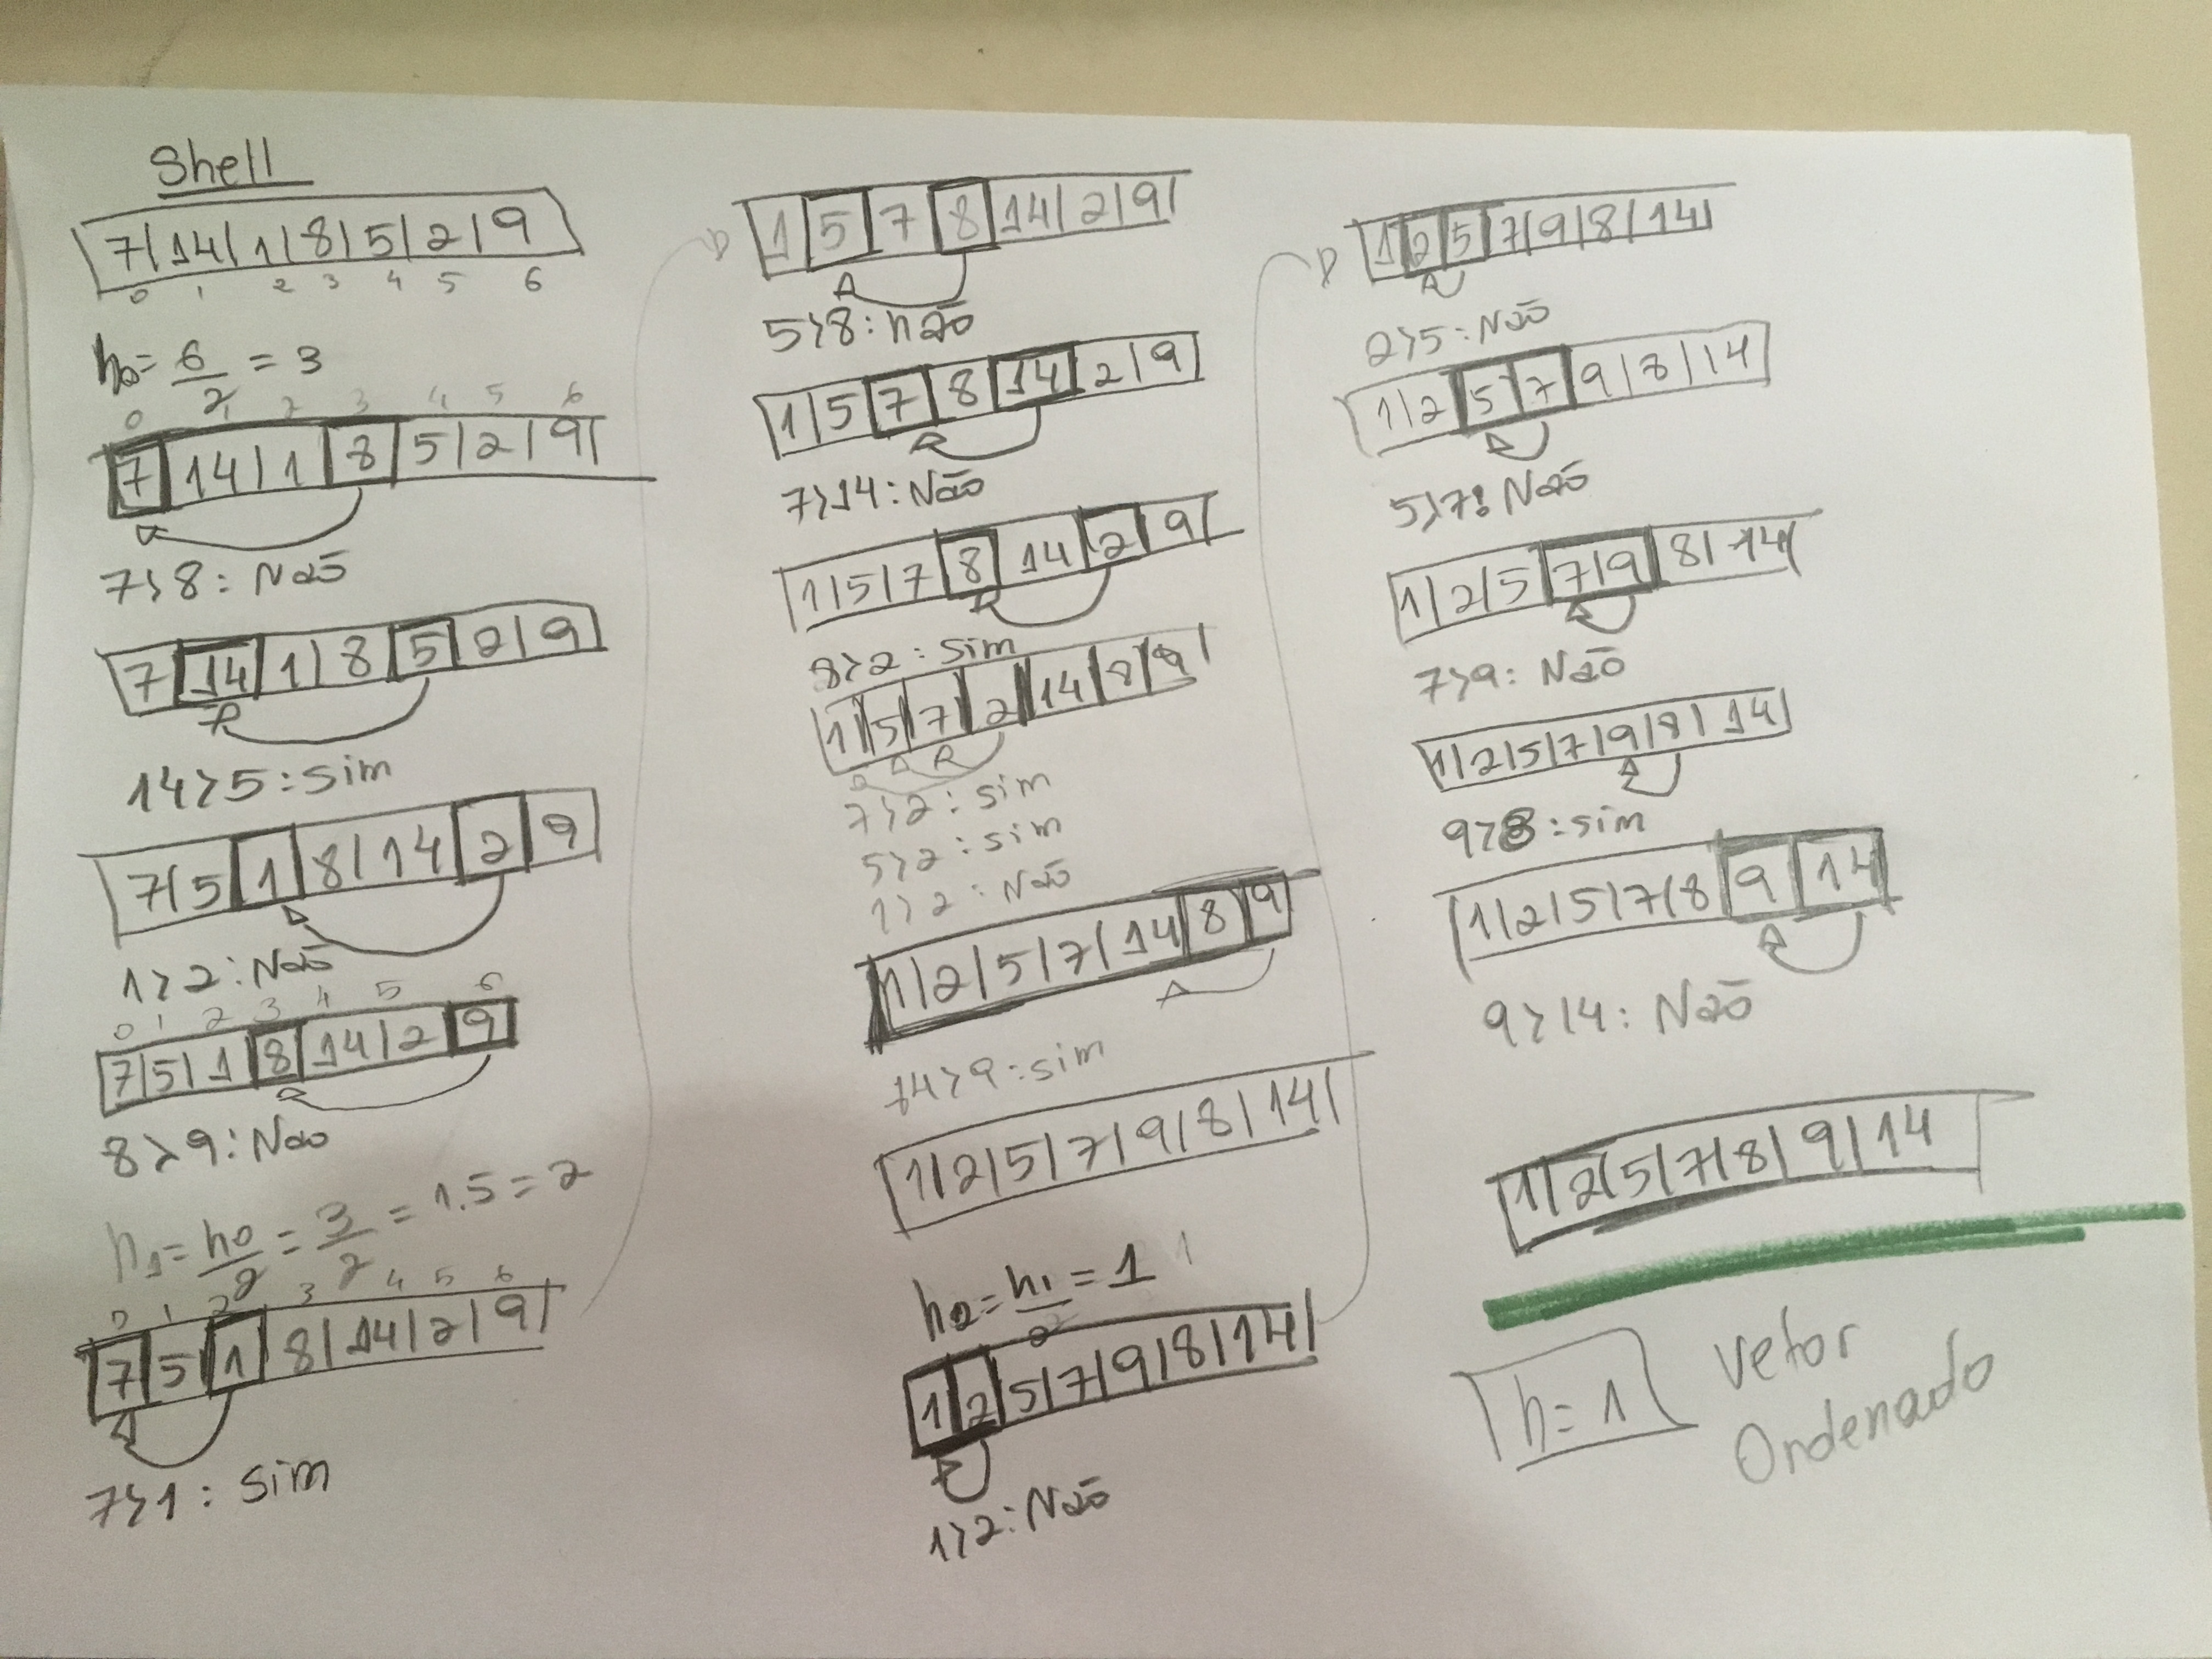 Shell
7|14|1|8|5|2|9
0 1 2 3 4 5 6
h0 = 6/2 = 3
0 1 2 3 4 5 6
7|14|1|8|5|2|9
7>8: Não
7|14|1|8|5|2|9
14>5: Sim
7|5|1|8|14|2|9
1>2: Não
0 1 2 3 4 5 6
7|5|1|8|14|2|9
8>9: Não
h1 = h0/2 = 3/2 = 1.5 = 2
0 1 2 3 4 5 6
7|5|1|8|14|2|9
7>1: Sim
1|5|7|8|14|2|9
5>8: não
1|5|7|8|14|2|9
7>14: Não
1|5|7|8|14|2|9
8>2: Sim
1|5|7|2|14|8|9
7>2: Sim
5>2: Sim
1>2: Não
1|2|5|7|14|8|9
14>9: Sim
1|2|5|7|9|8|14
h2 = h1/2 = 1
1|2|5|7|9|8|14
1>2: Não
1|2|5|7|9|8|14
2>5: Não
1|2|5|7|9|8|14
5>7: Não
1|2|5|7|9|8|14
7>9: Não
1|2|5|7|9|8|14
9>8: Sim
1|2|5|7|8|9|14
9>14: Não
1|2|5|7|8|9|14
h=1
Vetor
Ordenado